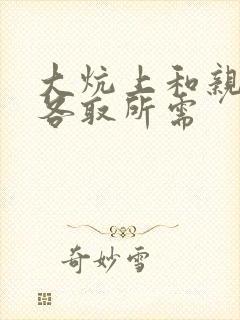 大炕上和親
各取所需
奇妙雪